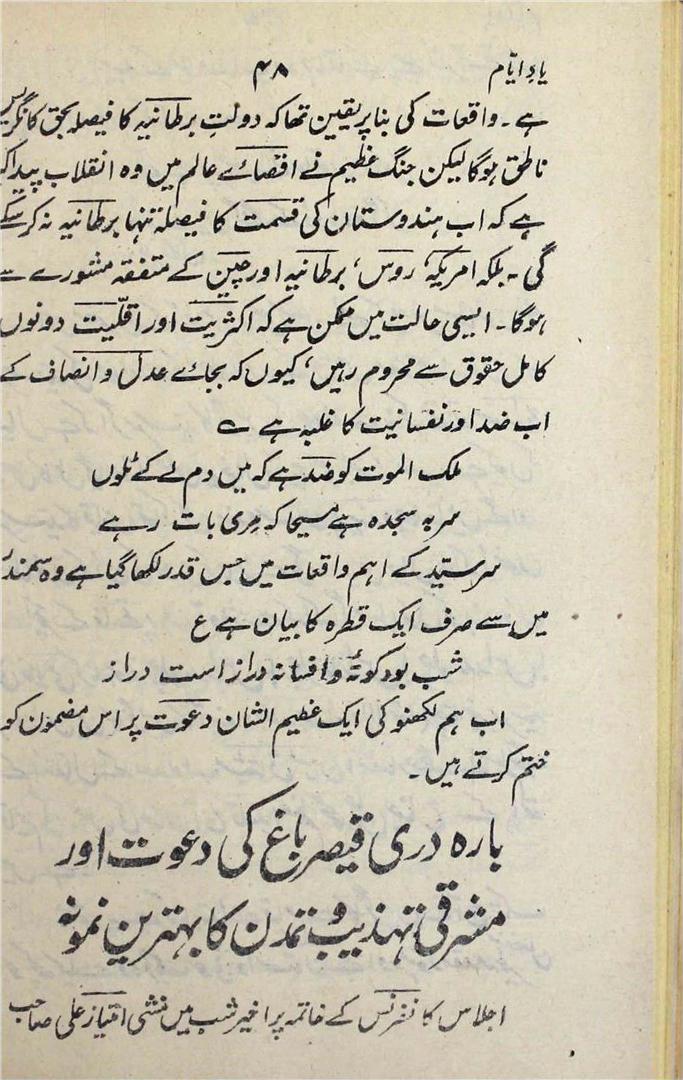 یادِ ایّام
۴۸
ہے۔ واقعات کی بنا پر یقین تھا کہ دولتِ برطانیہ کا فیصلہ بحق کانگریس
ناطق ہوگا لیکن جنگ عظیم نے اقصائے عالم میں وہ انقلاب پیدا کیا
ہے کہ اب ہندوستان کی قسمت کا فیصلہ تنہا برطانیہ نہ کر سکے
گی۔ بلکہ امریکہ، روس، برطانیہ اور چین کے متفقہ مشورے سے
ہوگا۔ ایسی حالت میں ممکن ہے کہ اکثریت اور اقلّیت دونوں
کامل حقوق سے محروم رہیں، کیوں کہ بجائے عدل و انصاف کے
اب ضد اور نفسانیت کا غلبہ ہے ؎
ملک الموت کو ضد ہے کہ میں دم لے کے ٹلوں
سر بہ سجدہ ہے مسیحا کہ مِری بات رہے
سر سیّد کے اہم واقعات میں جس قدر لکھا گیا ہے وہ سمندر
میں سے صرف ایک قطرہ کا بیان ہے ع
شب بود کوتہ و افسانہ دراز است دراز
اب ہم لکھنو کی ایک عظیم الشان دعوت پر اس مضمون کو
ختم کرتے ہیں۔
بارہ دری قیصر باغ کی دعوت اور
مشرقی تہذیب و تمدن کا بہترین نمونہ
اجلاس کانفرنس کے خاتمہ پر اخیر شب میں منشی امتیاز علی صاحب